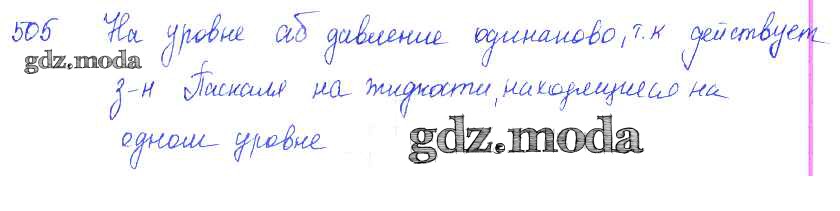 505 На уровне аб давление одинаково, т.к действует
gdz.moda
з-н Паскаля на жидкости, находящиеся на
одном уровне
gdz.moda